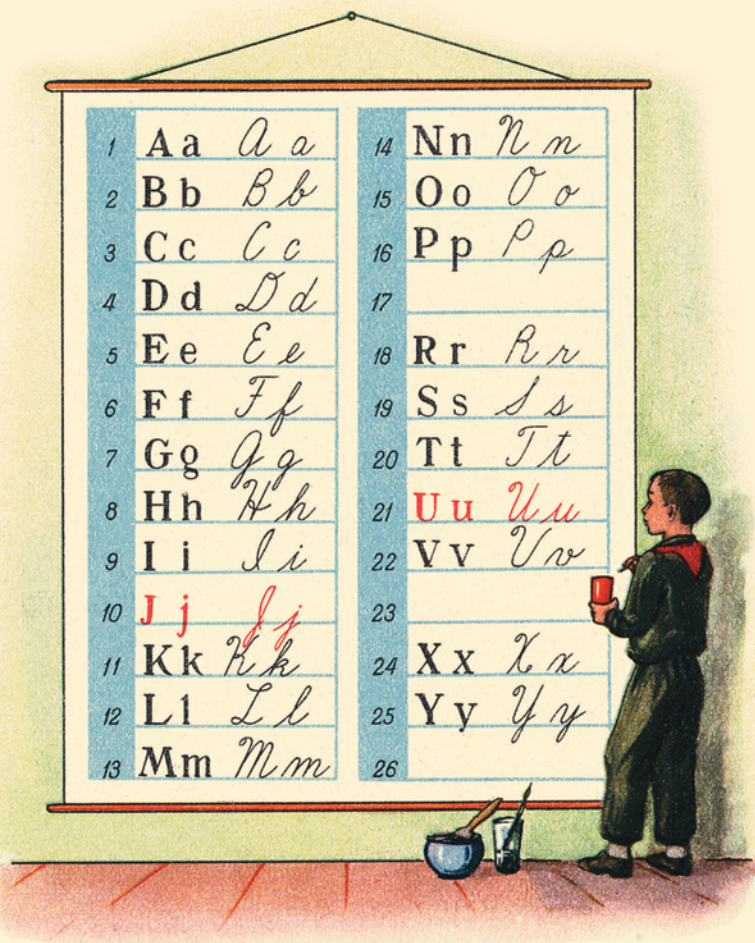 1 Aa A a
2 Bb B b
3 Cc C c
4 Dd D d
5 Ee E e
6 Ff F f
7 Gg G g
8 Hh H h
9 Ii I i
10 Jj J j
11 Kk K k
12 Ll L l
13 Mm M m
14 Nn N n
15 Oo O o
16 Pp P p
17
18 Rr R r
19 Ss S s
20 Tt T t
21 Uu U u
22 Vv V v
23
24 Xx X x
25 Yy Y y
26